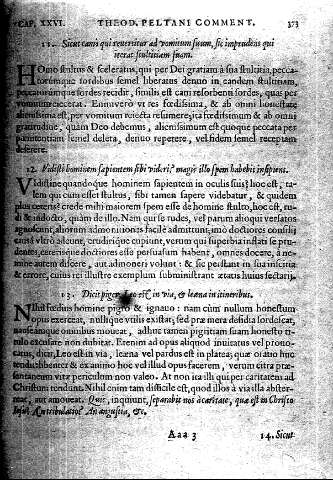 CAP. XXVI. THEOD. PELTANI COMMENT. 373
11. Sicut canis qui revertitur ad vomitum suum, sic imprudens qui
iterat stultitiam suam.
HOmo stultus & sceleratus, qui per Dei gratiam à sua stultitia, pecca-
torumque sordibus semel liberatus denuo in eandem stultitiam,
peccatorumque sordes recidit, similis est cani resorbenti sordes, quas per
vomitum eiecerat. Enimverò ut res fœdissima, & ab omni honestate
alienissima est, per vomitum reiecta resumere; ita fœdissimum & ab omni
gratitudine, quam Deo debemus, alienissimum est quoque peccata per
pœnitentiam semel deleta, denuo repetere, vel fidem semel receptam
deserere.
12. Vidisti hominem sapientem sibi videri? magis illo spem habebit insipiens.
VIdistine quandoque hominem sapientem in oculis suis? hoc est, ta-
lem qui cum esset stultus, sibi tamen sapere videbatur, & quidem
plus ceteris? crede mihi maiorem spem esse de homine stulto, hoc est, ru-
di & indocto, quàm de illo. Nam qui se rudes, vel parum alioqui versatos
agnoscunt, aliorum admonitiones facilè admittunt; imò doctores consilij
causa vltrò adeunt, erudirique cupiunt, verùm qui superbia inflati se pru-
dentes, ceterisque doctores esse persuasum habent, omnes docere, à ne-
mine autem discere, aut admoneri volunt: & sic perstant in sua inscitia
& errore, cuius rei illustre exemplum subministrant ætatis huius sectarij.
13. Dicit piger Leo est in via, & leæna in itineribus.
NIhil fœdius homine pigro & ignauo: nam cùm nullum honestum
opus exerceat, nullique vtilis existat, sed præ mera desidia sordescat,
nauseamque omnibus moueat, adhuc tamen pigritiam suam honesto ti-
tulo excusare non dubitat. Etenim ad opus aliquod inuitatus vel prouo-
catus, dicit, Leo est in via, leæna vel pardus est in platea; quæ oratio huc
tendit: libenter & ex animo hoc vel illud opus facerem, verùm citra præ-
sentaneum vitæ periculum non valeo. At non ita illi qui per caritatem ad
Christum tendunt. Nihil enim tam difficile est, quod illos à via illa abster-
reat, aut amoueat. Quis, inquiunt, separabit nos à caritate, quæ est in Christo
Iesu? An tribulatio? An angustia, &c.
Aaa 3 14. Sicut